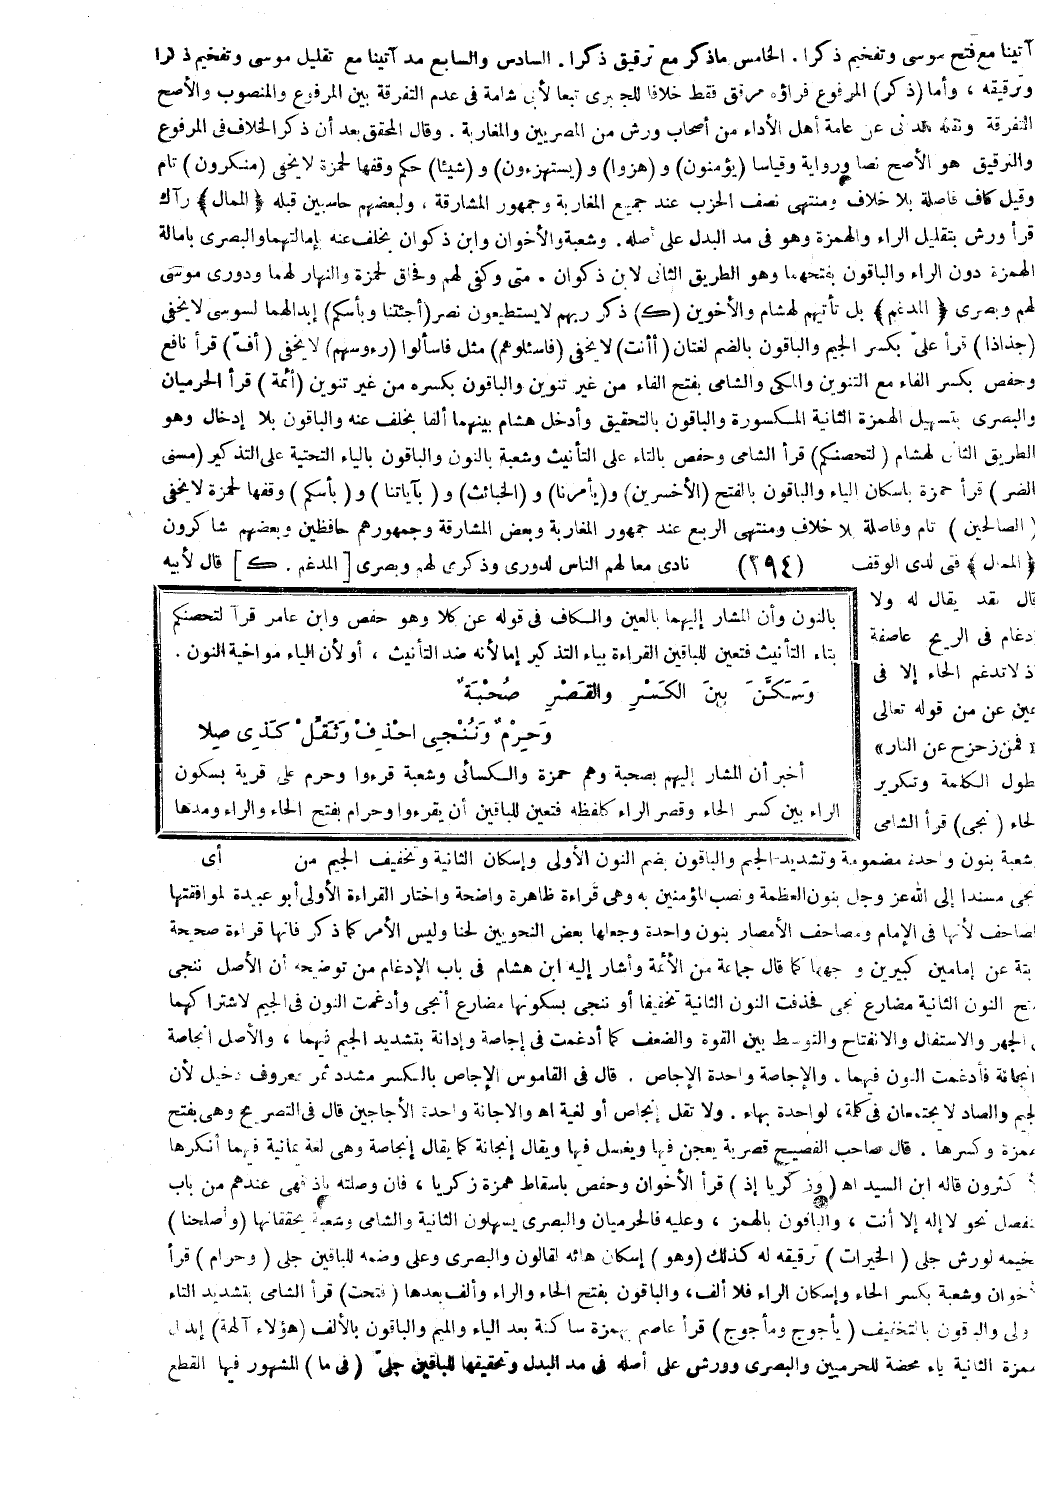 آتينا مع فتح موسى وتفخيم ذكرا . الخامس ماذكر مع ترقيق ذكرا . السادس والسابع مد آتينا مع تقليل موسى وتفخيم ذكرا
وترقيقه ، وأما (ذكر) المرفوع فراؤه مرقق فقط خلافا للجعبرى تبعا لأبى شامة فى عدم التفرقة بين المرفوع والمنصوب والأصح
التفرقة ونقله الدانى عن عامة أهل الأداء من أصحاب ورش من المصريين والمغاربة . وقال المحقق بعد أن ذكر الخلاف فى المرفوع
والترقيق هو الأصح نصا ورواية وقياسا (يؤمنون) و (هزوا) و (يستهزءون) و (شيئا) حكم وقفها لحمزة لايخفى (منكرون) تام
وقيل كاف فاصلة بلا خلاف ومنتهى نصف الحزب عند جميع المغاربة وجمهور المشارقة ، ولبعضهم حاسبين قبله ﴿الممال﴾ رآك
قرأ ورش بتقليل الراء والهمزة وهو فى مد البدل على أصله . وشعبة والأخوان وابن ذكوان بخلف عنه بإمالتهما والبصرى بامالة
الهمزة دون الراء والباقون بفتحهما وهو الطريق الثانى لابن ذكوان . متى وكفى لهم وفحاق لحمزة والنهار لهما ودورى موسى
لهم وبصرى ﴿المدغم﴾ بل تأتيهم لهشام والأخوين (ك) ذكر ربهم لايستطيعون نصر (أجئتنا وبأسكم) إبدالهما لسوسى لايخفى
(جذاذا) قرأ علىّ بكسر الجيم والباقون بالضم لغتان (أأنت) لايخفى (فاسئلوهم) مثل فاسألوا (رءوسهم) لايخفى (أفّ) قرأ نافع
وحفص بكسر الفاء مع التنوين والمكى والشامى بفتح الفاء من غير تنوين والباقون بكسره من غير تنوين (أئمة) قرأ الحرميان
والبصرى بتسهيل الهمزة الثانية المكسورة والباقون بالتحقيق وأدخل هشام بينهما ألفا بخلف عنه والباقون بلا إدخال وهو
الطريق الثانى لهشام (لتحصنكم) قرأ الشامى وحفص بالتاء على التأنيث وشعبة بالنون والباقون بالياء التحتية على التذكير (مسنى
الضر) قرأ حمزة باسكان الياء والباقون بالفتح (الأخسرين) و(يأمرنا) و (الخبائث) و (بآياتنا) و (بأسكم) وقفها لحمزة لايخفى
(الصالحين) تام وفاصلة بلا خلاف ومنتهى الربع عند جمهور المغاربة وبعض المشارقة وجمهورهم حافظين وبعضهم شاكرون
﴿الممال﴾ فتى لدى الوقف (٢٩٤) نادى معا لهم الناس لدورى وذكرى لهم وبصرى [المدغم . ك] قال لأبيه
قال لقد يقال له ولا
دغام فى الريح عاصفة
ذ لاتدغم الحاء إلا فى
عين عن من قوله تعالى
فمن زحزح عن النار»
طول الكلمة وتكرير
لحاء (نجى) قرأ الشامى
بالنون وأن المشار إليهما بالعين والكاف فى قوله عن كلا وهو حفص وابن عامر قرآ لتحصنكم
بتاء التأنيث فتعين للباقين القراءة بياء التذكير إما لأنه ضد التأنيث ، أو لأن الياء مواخية النون .
وَسَكَّنَ بَينَ الكَسْرِ والقَصْرِ صُحْبَةٌ
وَحِرْمٌ وَنُنْجِى احْذِفْ وَثَقِّلْ كَذِى صِلا
أخبر أن المشار إليهم بصحبة وهم حمزة والكسائى وشعبة قرءوا وحرم على قرية بسكون
الراء بين كسر الحاء وقصر الراء كلفظه فتعين للباقين أن يقرءوا وحرام بفتح الحاء والراء ومدها
شعبة بنون واحدة مضمومة وتشديد الجيم والباقون بضم النون الأولى وإسكان الثانية وتخفيف الجيم من أى
نجى مسندا إلى الله عز وجل بنون العظمة ونصب المؤمنين به وهى قراءة ظاهرة واضحة واختار القراءة الأولى أبو عبيدة لموافقتها
لصاحف لأنها فى الإمام ومصاحف الأمصار بنون واحدة وجعلها بعض النحويين لحنا وليس الأمر كما ذكر فانها قراءة صحيحة
بتة عن إمامين كبيرين وجهها كما قال جماعة من الأئمة وأشار إليه ابن هشام فى باب الإدغام من توضيحه أن الأصل ننجى
تح النون الثانية مضارع نجى فحذفت النون الثانية تخفيفا أو ننجى بسكونها مضارع أنجى وأدغمت النون فى الجيم لاشتراكهما
ى الجهر والاستفال والانفتاح والتوسط بين القوة والضعف كما أدغمت فى إجاصة وإدانة بتشديد الجيم فيهما ، والأصل انجاصة
انجانة فأدغمت النون فيهما . والإجاصة واحدة الإجاص . قال فى القاموس الإجاص بالكسر مشدد ثمر معروف دخيل لأن
لجيم والصاد لايجتمعان فى كلمة، لواحدة بهاء . ولا تقل إنجاص أو لغية اه والاجانة واحدة الأجاجين قال فى التصريح وهى بفتح
همزة وكسرها . قال صاحب الفصيح قصرية يعجن فيها ويغسل فيها ويقال إنجانة كما يقال إنجاصة وهى لغة يمانية فيهما أنكرها
أكثرون قاله ابن السيد اه (وزكريا إذ) قرأ الأخوان وحفص باسقاط همزة زكريا ، فان وصلته باذ فهى عندهم من باب
نفصل نحو لا إله إلا أنت ، والباقون بالهمز ، وعليه فالحرميان والبصرى يسهلون الثانية والشامى وشعبة يحققانها (وأصلحنا)
خيمه لورش جلى (الخيرات) ترقيقه له كذلك (وهو) إسكان هائه لقالون والبصرى وعلى وضمه للباقين جلى (وحرام) قرأ
خوان وشعبة بكسر الحاء وإسكان الراء فلا ألف، والباقون بفتح الحاء والراء وألف بعدها (فتحت) قرأ الشامى بتشديد التاء
ولى والباقون بالتخفيف (يأجوج ومأجوج) قرأ عاصم بهمزة ساكنة بعد الياء والميم والباقون بالألف (هؤلاء آلهة) إبدال
همزة الثانية ياء محضة للحرميين والبصرى وورش على أصله فى مد البدل وتحقيقها للباقين جلىّ (فى ما) المشهور فيها القطع